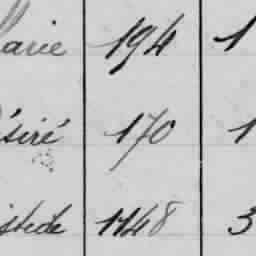 Marie 194 1
ésiré 170 1
istide 1148 3